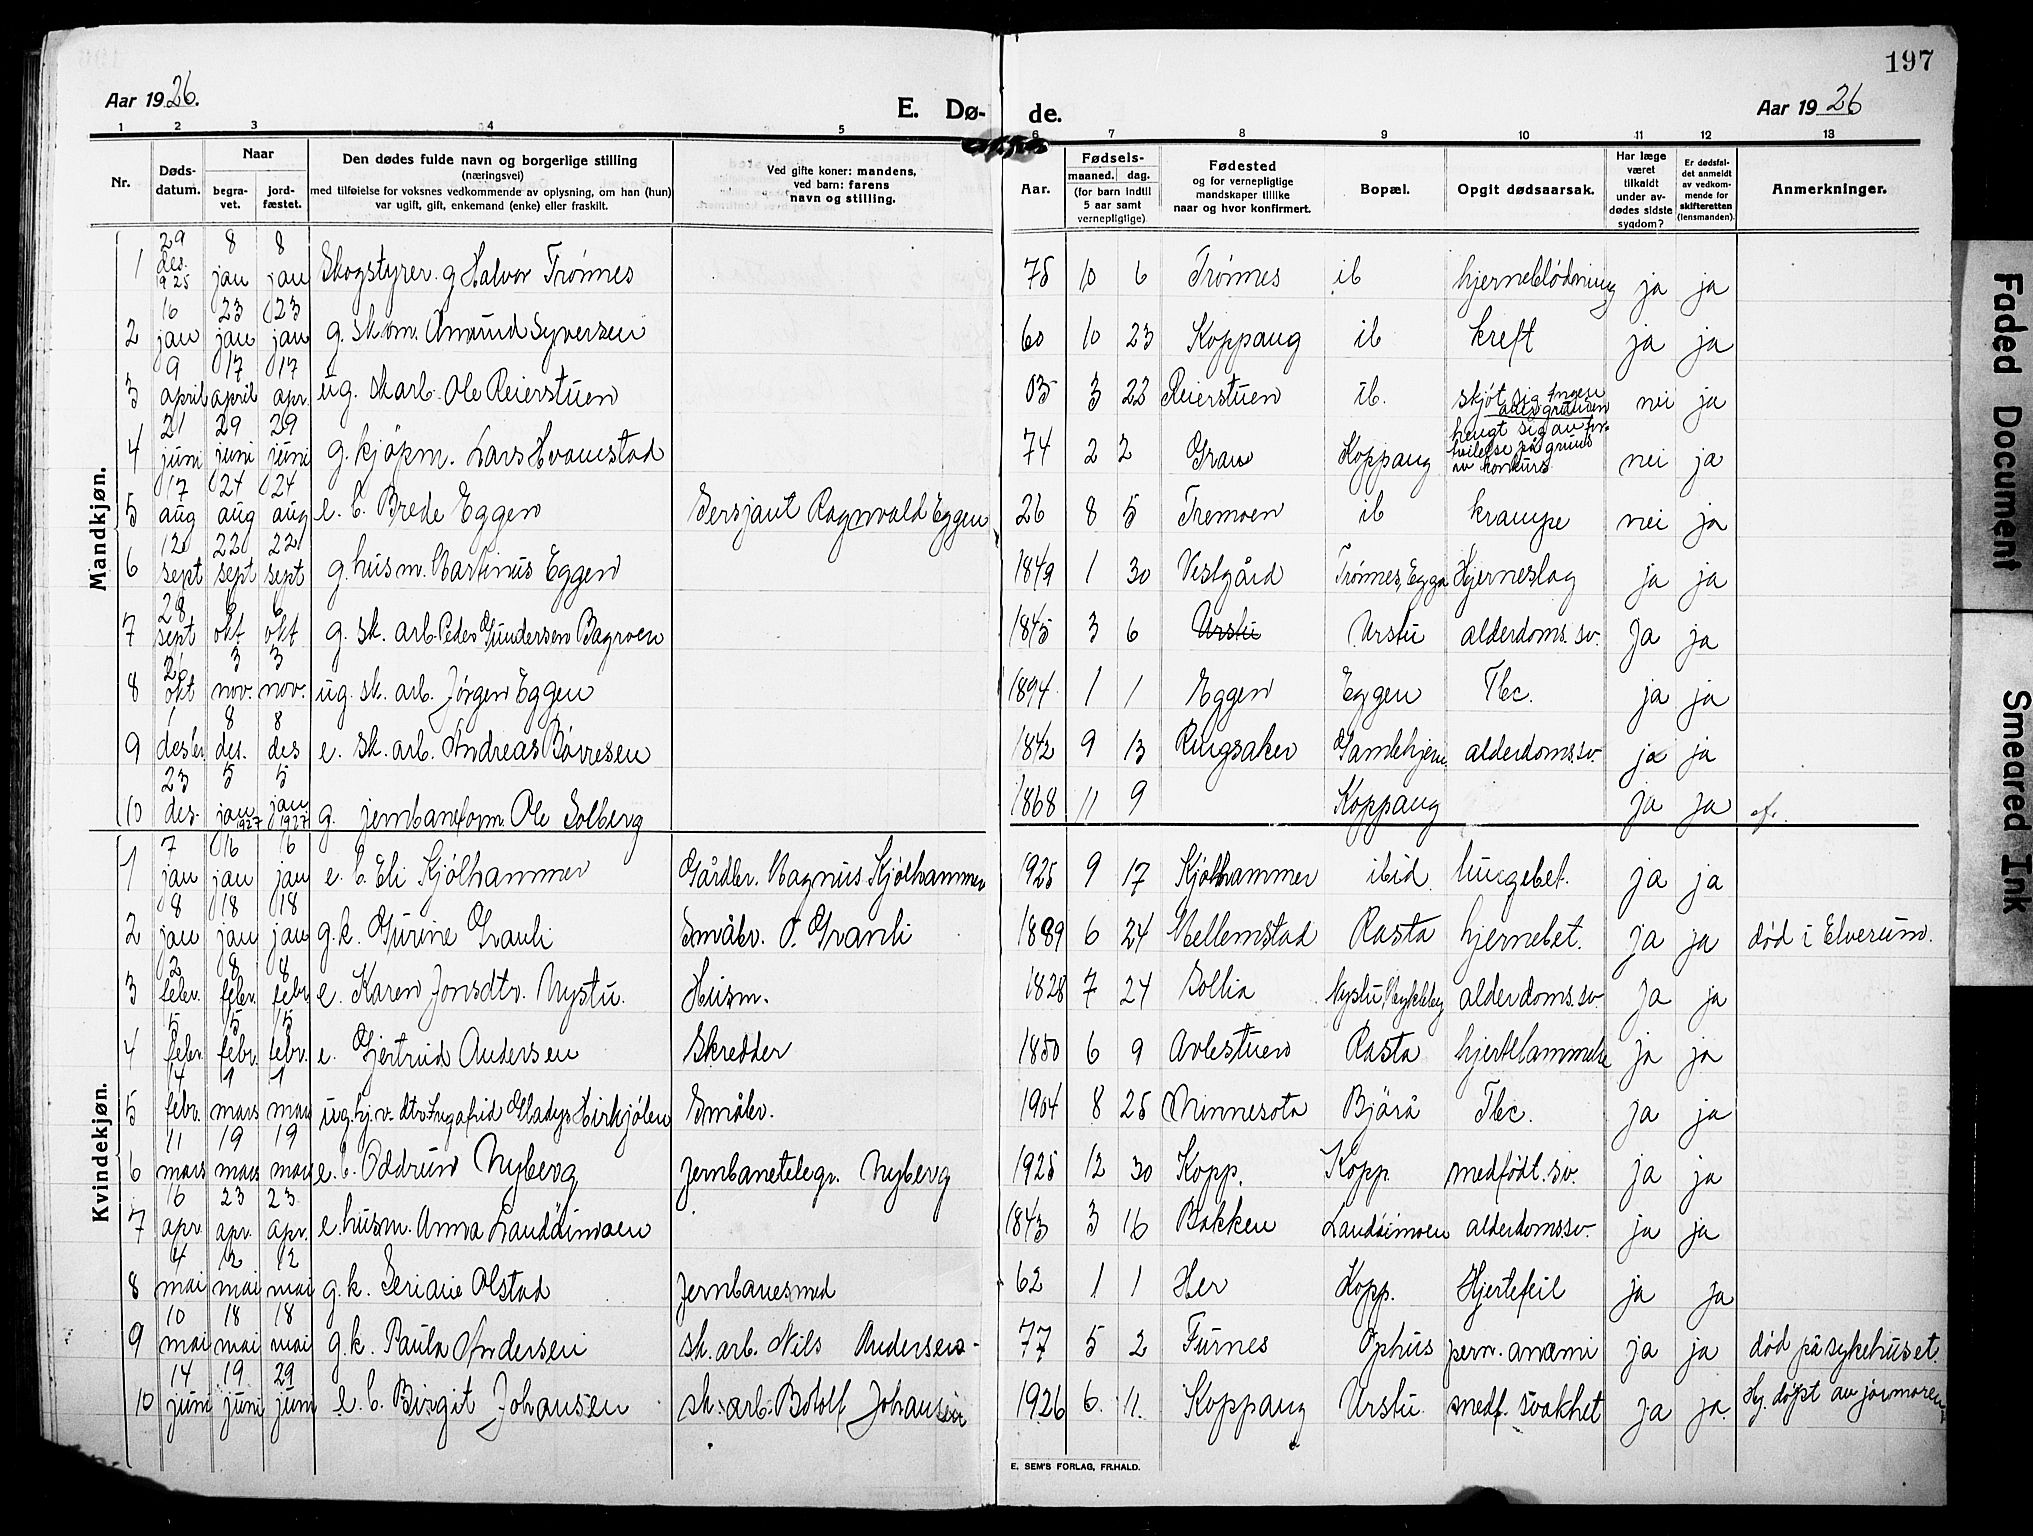 197
Aar 1926. E. Dø- de. Aar 1926
1 2 3 4 5 6 7 8 9 10 11 12 13
Nr. Døds-datum. Naar begra-vet. jord-fæstet. Den dødes fulde navn og borgerlige stilling (næringsvei) med tilføielse for voksnes vedkommende av oplysning, om han (hun) var ugift, gift, enkemand (enke) eller fraskilt. Ved gifte koner: mandens, ved barn: farens navn og stilling. Aar. Fødsels- maaned. dag. (for barn indtil 5 aar samt vernepligtige). Fødested og for vernepligtige mandskaper tillike naar og hvor konfirmert. Bopæl. Opgit dødsaarsak. Har læge været tilkaldt under av-dødes sidste sygdom? Er dødsfal-det anmeldt av vedkom-mende for skifteretten (lensmanden). Anmerkninger.
Mandkjøn.
1 29 des. 1925 8 jan 8 jan Skogstyrer g Halvor Trønnes 75 10 6 Trønnes ib hjerneblødning ja ja
2 16 jan 23 jan 23 jan g. skom. Amund Syversen 60 10 23 Koppang ib kreft ja ja
3 9 april 17 april 17 apr ug. sk arb. Ole Reierstuen 03 3 22 Reierstuen ib. skjøt sig nei ja
4 21 juni 29 juni 29 juni g. kjøpm. Lars Hvamstad 74 2 2 Gran Koppang hengt sig av for-tvilelse på grund av konkurs nei ja
5 17 aug 24 aug 24 aug e. b. Brede Eggen Sersjant Ragnvald Eggen 26 8 5 Tremoen ib krampe nei ja
6 12 sept 22 sept 22 sept g. husm. Martinus Eggen 1849 1 30 Vestgård Trønnes, Eggen Hjerneslag ja ja
7 28 sept 6 okt 6 okt g. sk. arb. Peder Gundersen Bagroen 1845 3 6 Urstu Urstu alderdoms.sv. ja ja
8 26 okt 3 nov. 3 nov. ug. sk. arb. Jørgen Eggen 1894 1 1 Eggen Eggen Tbc. ja ja
9 1 desbr 8 des. 8 des e. sk. arb. Andreas Børresen 1842 9 13 Ringsaker Gamlehjem. alderdoms.sv. ja ja
10 23 des. 5 jan 1927 5 jan 1927 g. jernbaneform. Ole Solberg 1868 11 9 Koppang ja ja
Kvindekjøn.
1 7 jan 16 jan 16 jan e. b. Eli Kjølhammer Gårdbr. Magnus Kjølhammer 1925 9 17 Kjølhammer ibid. lungebet. ja ja
2 8 jan 18 jan 18 jan g. k. Gurine Granli Småbr. O. Granli 1889 6 24 Mellemstad Rasta hjernebet. ja ja død i Elverum.
3 2 febr. 8 febr. 8 febr e. Karen Jonsdtr. Nystu. Husm. 1828 7 24 Sollia Nystu, alderdoms.sv. ja ja
4 5 febr. 15 febr. 15 febr. e. Gjertrud Andersen Skredder 1850 6 9 Avlestuen Rasta hjertelammelse ja ja
5 14 febr. 1 mars 1 mars ug. hj. v. dtr. Ingafrid Gladys Hirkjølen Småbr. 1904 8 25 Minnesota Bjørå Tbc. ja ja
6 11 mars 19 mars 19 mars e. b. Oddrun Nyberg Jernbanetelegr. Nyberg 1925 12 30 Kopp. Kopp. medfødt. sv. ja ja
7 16 apr 23 apr. 23 apr. e. husm. Anna Landåimoen 1843 3 16 Bakken Landåimoen alderdomssv. ja ja
8 4 mai 12 mai 12 mai g. k. Seriane Olstad Jernbanesmed 62 1 1 Her Kopp. Hjertefeil ja ja
9 10 mai 18 mai 18 mai g. k. Paula Andersen sk. arb. Nils Andersen 77 5 2 Furnes Ophus pern. anæmi ja ja død på sykehuset.
10 14 juni 19 juni 29 juni e. b. Birgit Johansen sk. arb. Botolf Johansen 1926 6. 11. Koppang Urstu. medf. svakhet ja ja. Hj. døpt av jormoren
E. SEM'S FORLAG, FR.HALD.
Faded Document
Smeared Ink